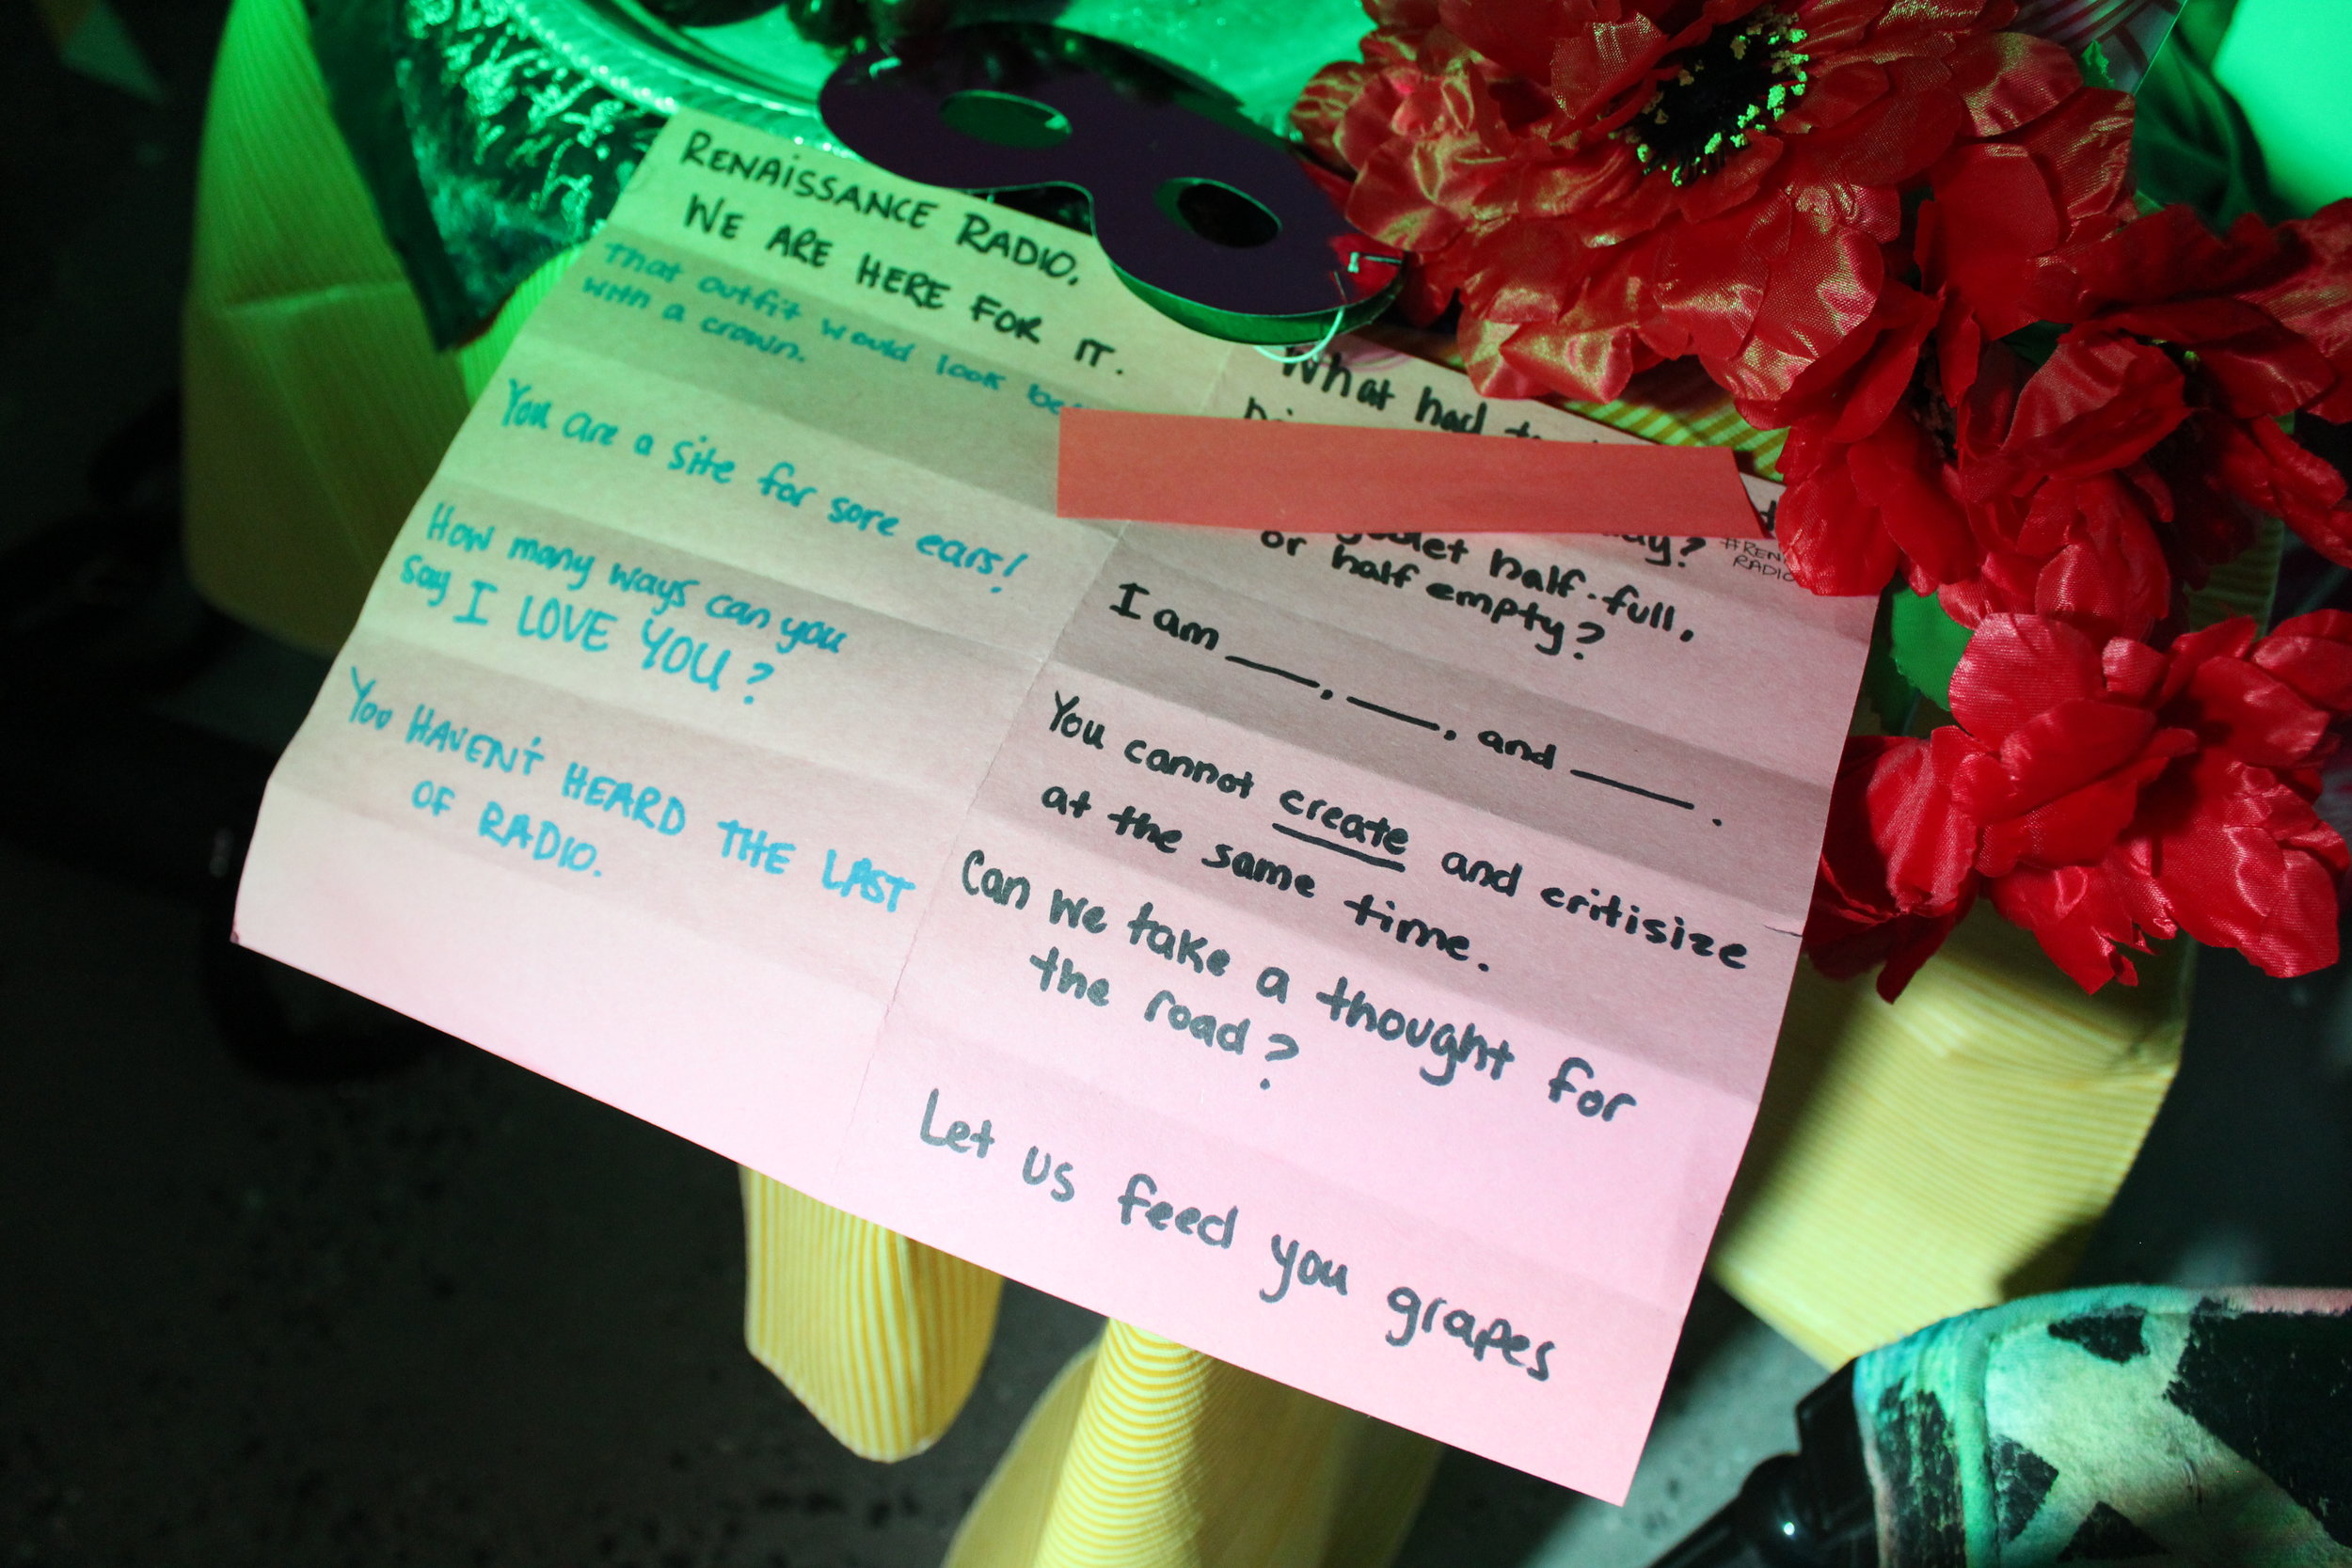 RENAISSANCE RADIO,
WE ARE HERE FOR IT.
That outfit would look
with a crown.
You are a site for sore ears!
How many ways can you
say I LOVE YOU?
YOU HAVEN'T HEARD THE LAST
OF RADIO.
What had
half-full,
or half empty?
I am ___, ___, and ___.
You cannot create and critisize
at the same time.
Can we take a thought for
the road?
Let us feed you grapes
RADIO